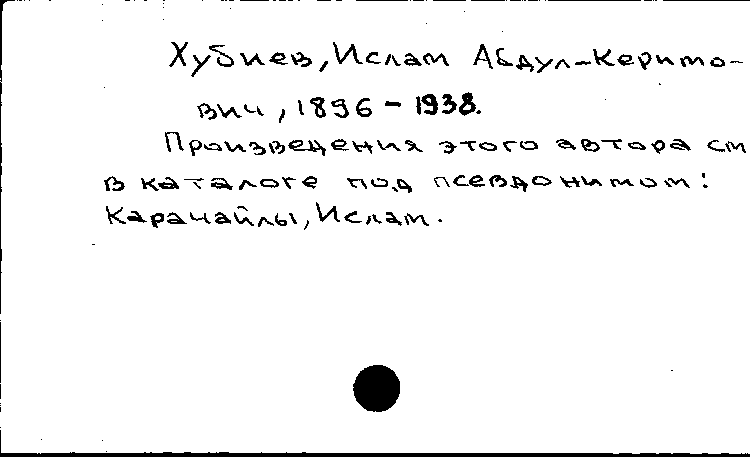 Хубиев, Ислам Абдул-Керимо-
вич, 1896-1938.
Произведения этого автора см
в каталоге под псевдонимом:
Карачайлы, Ислам.